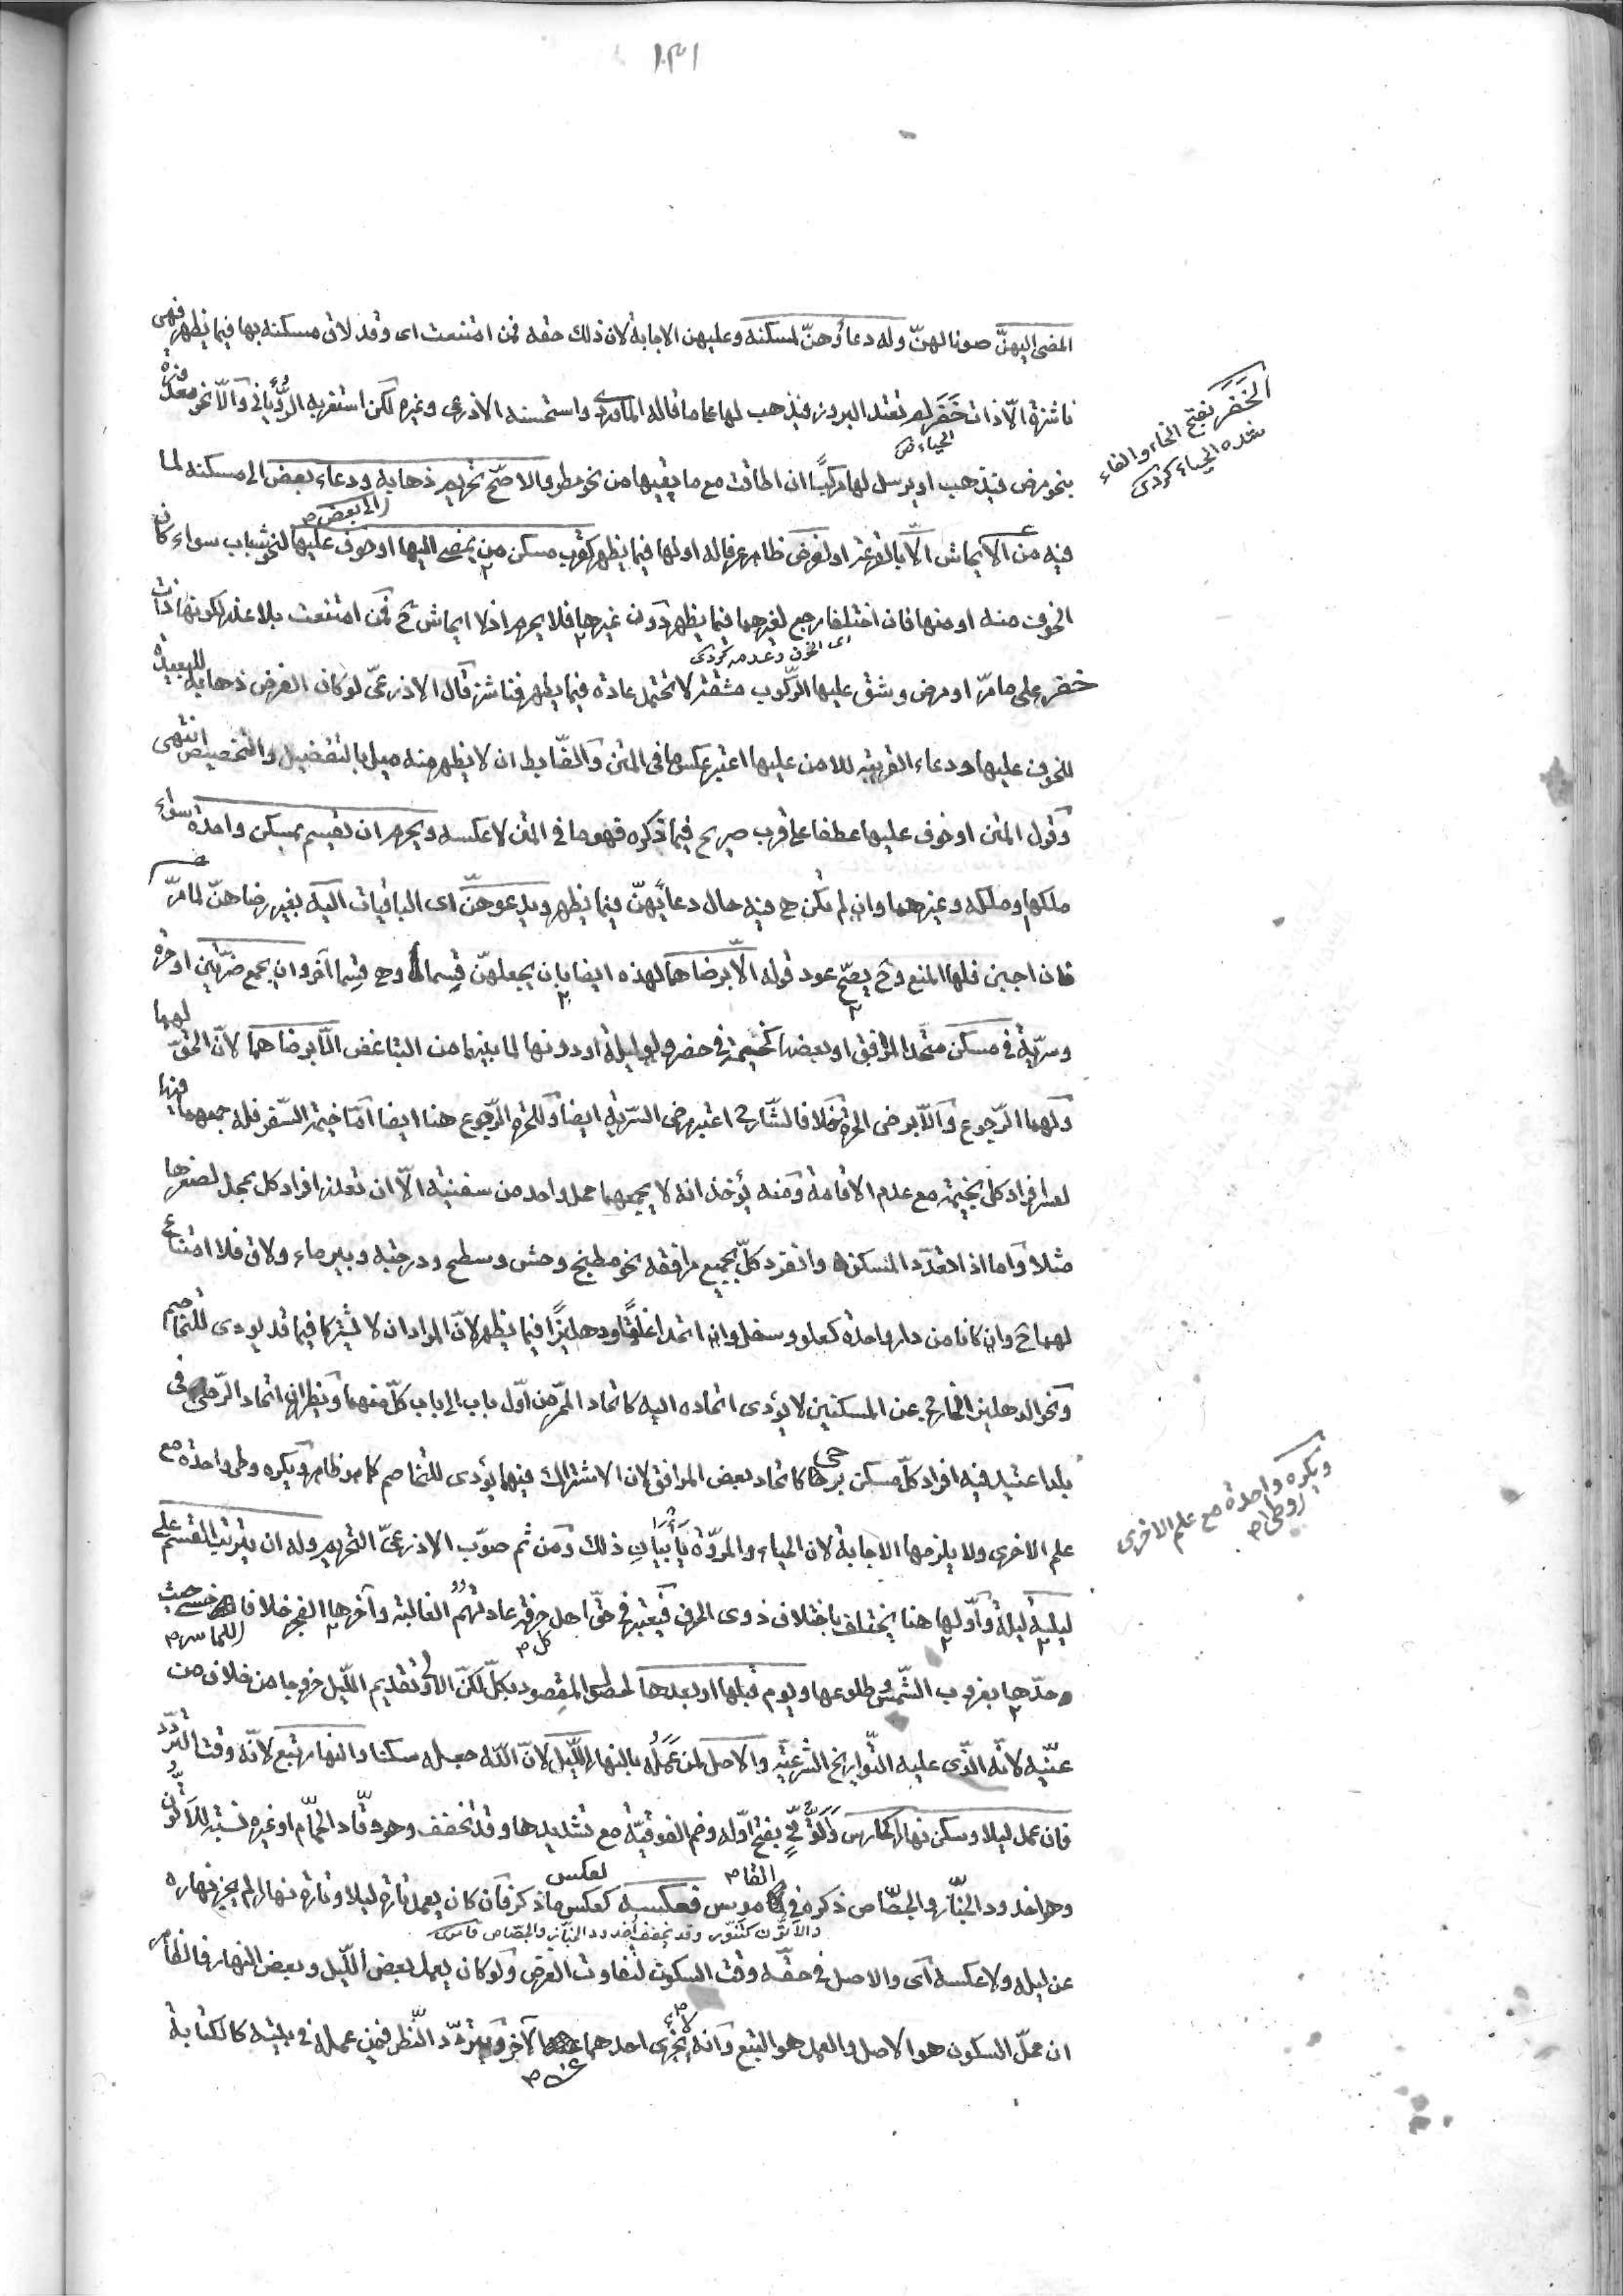 ١٣١
المضى اليهنّ صونا لهنّ وله دعاؤهنّ لمسكنه وعليهن الاجابة لان ذلك حقه فمن امتنعت اى وقد لاق مسكنه بها فيما يظهر فهى
ناشزة الّا ذات خَفَر لم تعتد البروز فيذهب لها على ما قاله الماوردى واستحسنه الاذرعى وغيره لكن استغربه الرُّويانى والّا نحو معذورة
الحياء ص
بنحو مرض فيذهب او يرسل لها مركبًا ان اطاقت مع ما يقيها من نحو مطر والاصحّ تحريم ذهابه ودعاء بعض الى مسكنه لما
الى بعض ص
فيه من الايحاش الّا بالقرعة او لغرض ظاهر عرفا له او لها فيما يظهر كقرب مسكن من يمضى اليها او خوف عليها لنحو شباب سواء كان
الخوف منه او منها فان اختلفا رجع لغيرهما فيما يظهر دون غيرها فلا يحرم اذ لا ايحاش ح فمن امتنعت بلا عذر لكونها ذات
اى الخوف وعدمه كردى
خفر على ما مرّ او مرض وشق عليها الرّكوب مشقة لا تحتمل عادة فيما يظهر فناشزة قال الاذرعىّ لو كان الغرض ذهابه للبعيدة
للخوف عليها ودعاء القريبة للامن عليها اعتبر عكس ما فى المتن والضّابط ان لا يظهر منه ميل بالتفضيل والتخصيص انتهى
وقول المتن او خوف عليها عطفا على قرب صريح فيما ذكره فهو ما فى المتن لا عكسه ويحرم ان يقيم بمسكن واحدة سواء
ملكها وملكه وغيرهما وان لم تكن هى فيه حال دعائهنّ فيما يظهر ويدعوهنّ اى الباقيات اليه بغير رضاهنّ لما مرّ
فان اجبن فلها المنع وح يصحّ عود قوله الّا برضاهما لهذه ايضا بان يجعلهنّ قسما وهى قسما آخر وان يجمع ضرّتين او حرة
وسرّيّة فى مسكن متّحد المرافق او بعضها كخيمة فى حضر ولو ليلة او دونها لما بينهما من التباغض الّا برضاهما لانّ الحقّ لهما
ولهما الرّجوع والّا برضى الحرة خلافا لشارح اعتبر رضى السّرّيّة ايضا وللحرة الرّجوع هنا ايضا امّا خيمة السّفر فله جمعهما فيها
لعسر افراد كل بخيمة مع عدم الاقامة ومنه يؤخذ انه لا يجمعهما محل واحد من سفينة الّا ان تعذر افراد كل بمحل لصغرها
مثلا واما اذا تعدّد المسكن وانفرد كلّ بجميع مرافقه نحو مطبخ وحش وسطح ودرجته وبير ماء ولاق فلا امتناع
لهما ح وان كانا من دار واحدة كعلو وسفل وان اتحدا غلقًا ودهليزًا فيما يظهر لانّ المراد ان لا يشتركا فيما قد يودى للتخاصم
ونحو الدهليز الخارج عن المسكنين لا يؤدى اتحاده اليه كاتحاد الممرّ من اوّل باب الى باب كلّ منهما ويظهر ان اتحاد الرّحى فى
بلد اعتيد فيه افراد كلّ مسكن برحى كاتحاد بعض المرافق لان الاشتراك فيهما يؤدى للتخاصم كما هو ظاهر ويكره وطى واحدة مع
علم الاخرى ولا يلزمها الاجابة لان الحياء والمروّة يأبيان ذلك ومن ثم صوّب الاذرعىّ التحريم وله ان يترتب القسم على
ليلة ليلة واوّلها هنا يختلف باختلاف ذوى الحرف فيعتبر فى حقّ اهل حرفة عادتهم الغالبة وآخرها الفجر خلافا حيث
كل ص
حدّها بغروب الشّمس وطلوعها ويوم قبلها او بعدها لحصول المقصود بكلّ لكنّ الاولى تقديم اللّيل خروجا من خلاف من
عيّنه لانّه الذّى عليه التّواريخ الشّرعيّة والاصل لمن عَمَلُه بالنهار اللّيل لانّ اللّه جعله سكنا والنهار تبع لانّه وقت التردّد
فان عمل ليلا وسكن نهارا كحارس وَاَتُّونىّ بفتح اوّله وضم الفوقيّة مع تشديدها وقد تخفف وهو وقّاد الحمّام او غيره نسبة للاتّون
القا ص
لعكس
وهو اخدود الخبّاز والجصّاص ذكره فى القاموس فعكسه كعكس ما ذكر فان كان يعمل تارة ليلا وتارة نهارا لم يجز نهاره
والاتّون كتنّور وقد يخفف اخدود الخبّاز والجصّاص قاموس
عن ليله ولا عكسه اى والاصل فى حقّه وقت السكون لتفاوت الغرض ولو كان يعمل بعض اللّيل وبعض النهار فالظاهر
ان محلّ السكون هو الاصل والعمل هو التبع وانه لا يجزى احدهما عن الآخر ويتردّد النّظر فيمن عمله فى بيته كالكتابة
عن ص
الخَفَر بفتح الخاء والفاء
شدة الحياء كردى
ويكره واحدة مع علم الاخرى
وطى ص